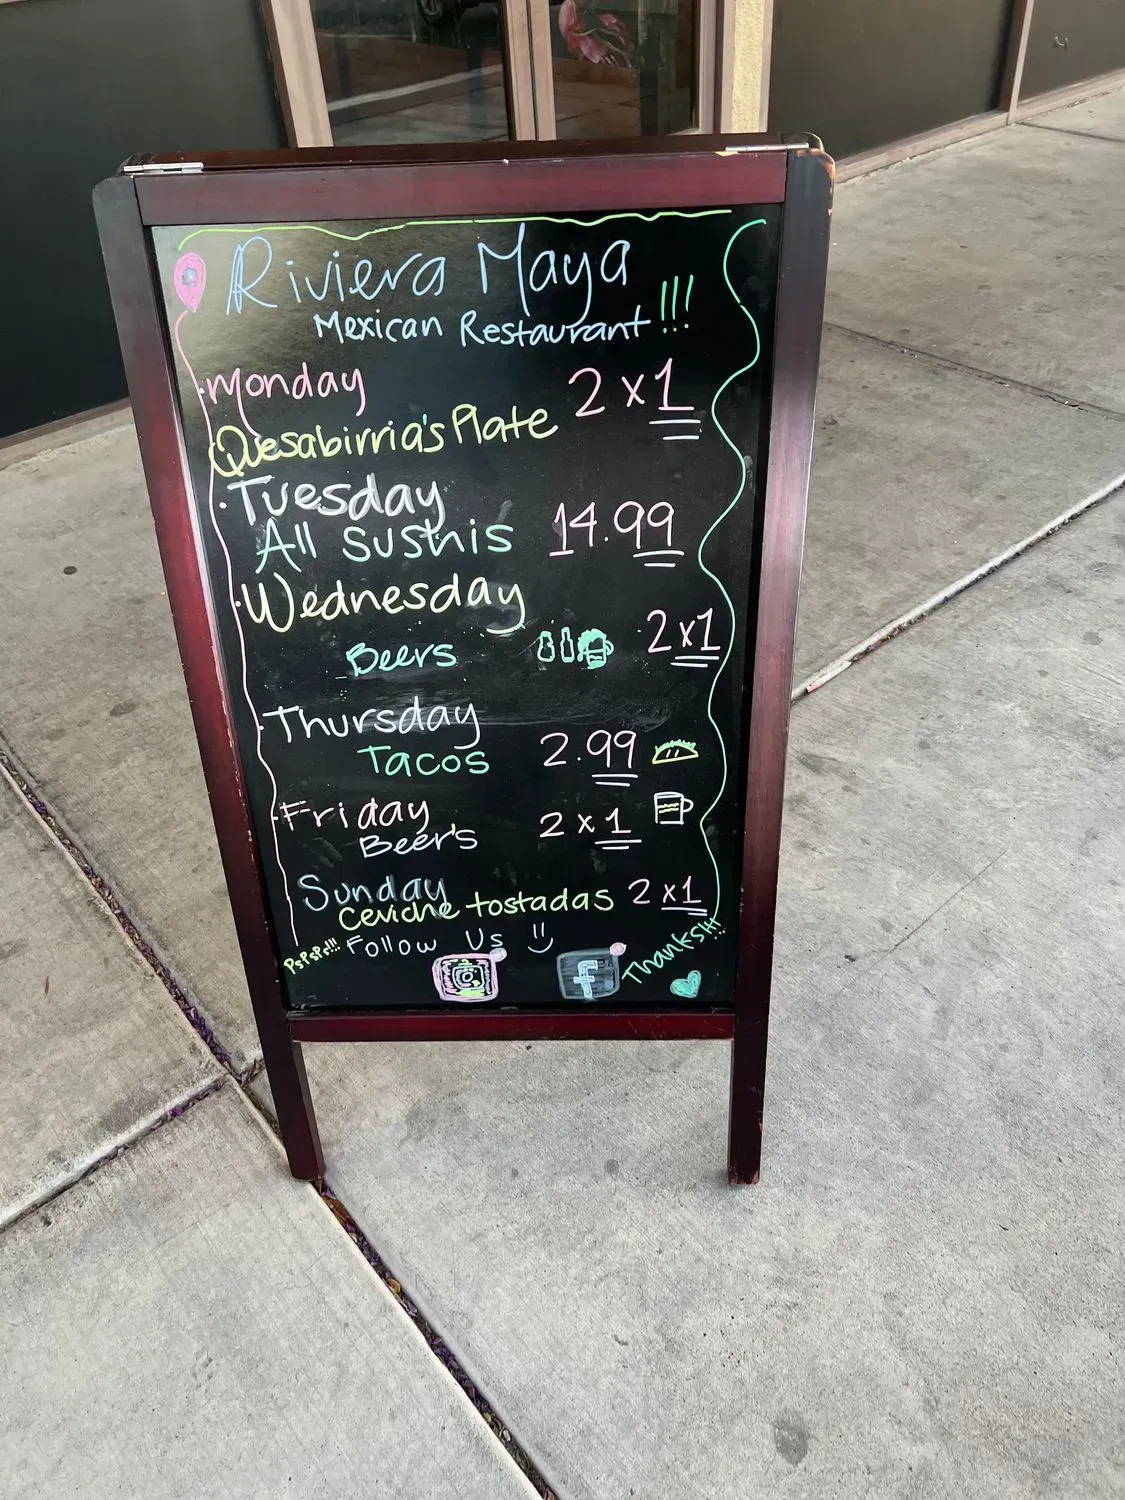 Riviera Maya
Mexican Restaurant !!!
Monday 2x1
Quesabirria's Plate
Tuesday
All sushis 14.99
Wednesday
Beers 2x1
Thursday
Tacos 2.99
Friday
Beer's 2x1
Sunday
Ceviche tostadas 2x1
PsPsPs!!! Follow Us
f Thanks!!!